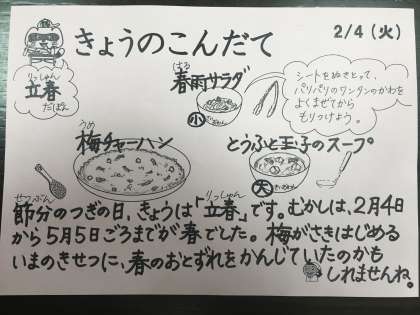 きょうのこんだて
2/4（火）
りっしゅん
立春
だぽん
はる
春雨サラダ
小
シートをぬきとって、
パリパリのワンタンのかわを
よくまぜてから
もりつけよう。
うめ
梅チャーハン
とうふと玉子のスープ
大
せつぶん
りっしゅん
節分のつぎの日、きょうは「立春」です。むかしは、2月4日
から5月5日ごろまでが春でした。梅がさきはじめる
いまのきせつに、春のおとずれをかんじていたのかも
しれませんね。